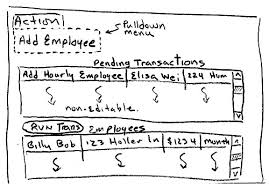 Action
Add Employee
Pulldown
menu
Pending Transactions
Add Hourly Employee Elisa Wei 224 Hum
non-editable
RUN TRANS Employees
Billy Bob 123 Holler Ln $1234 month